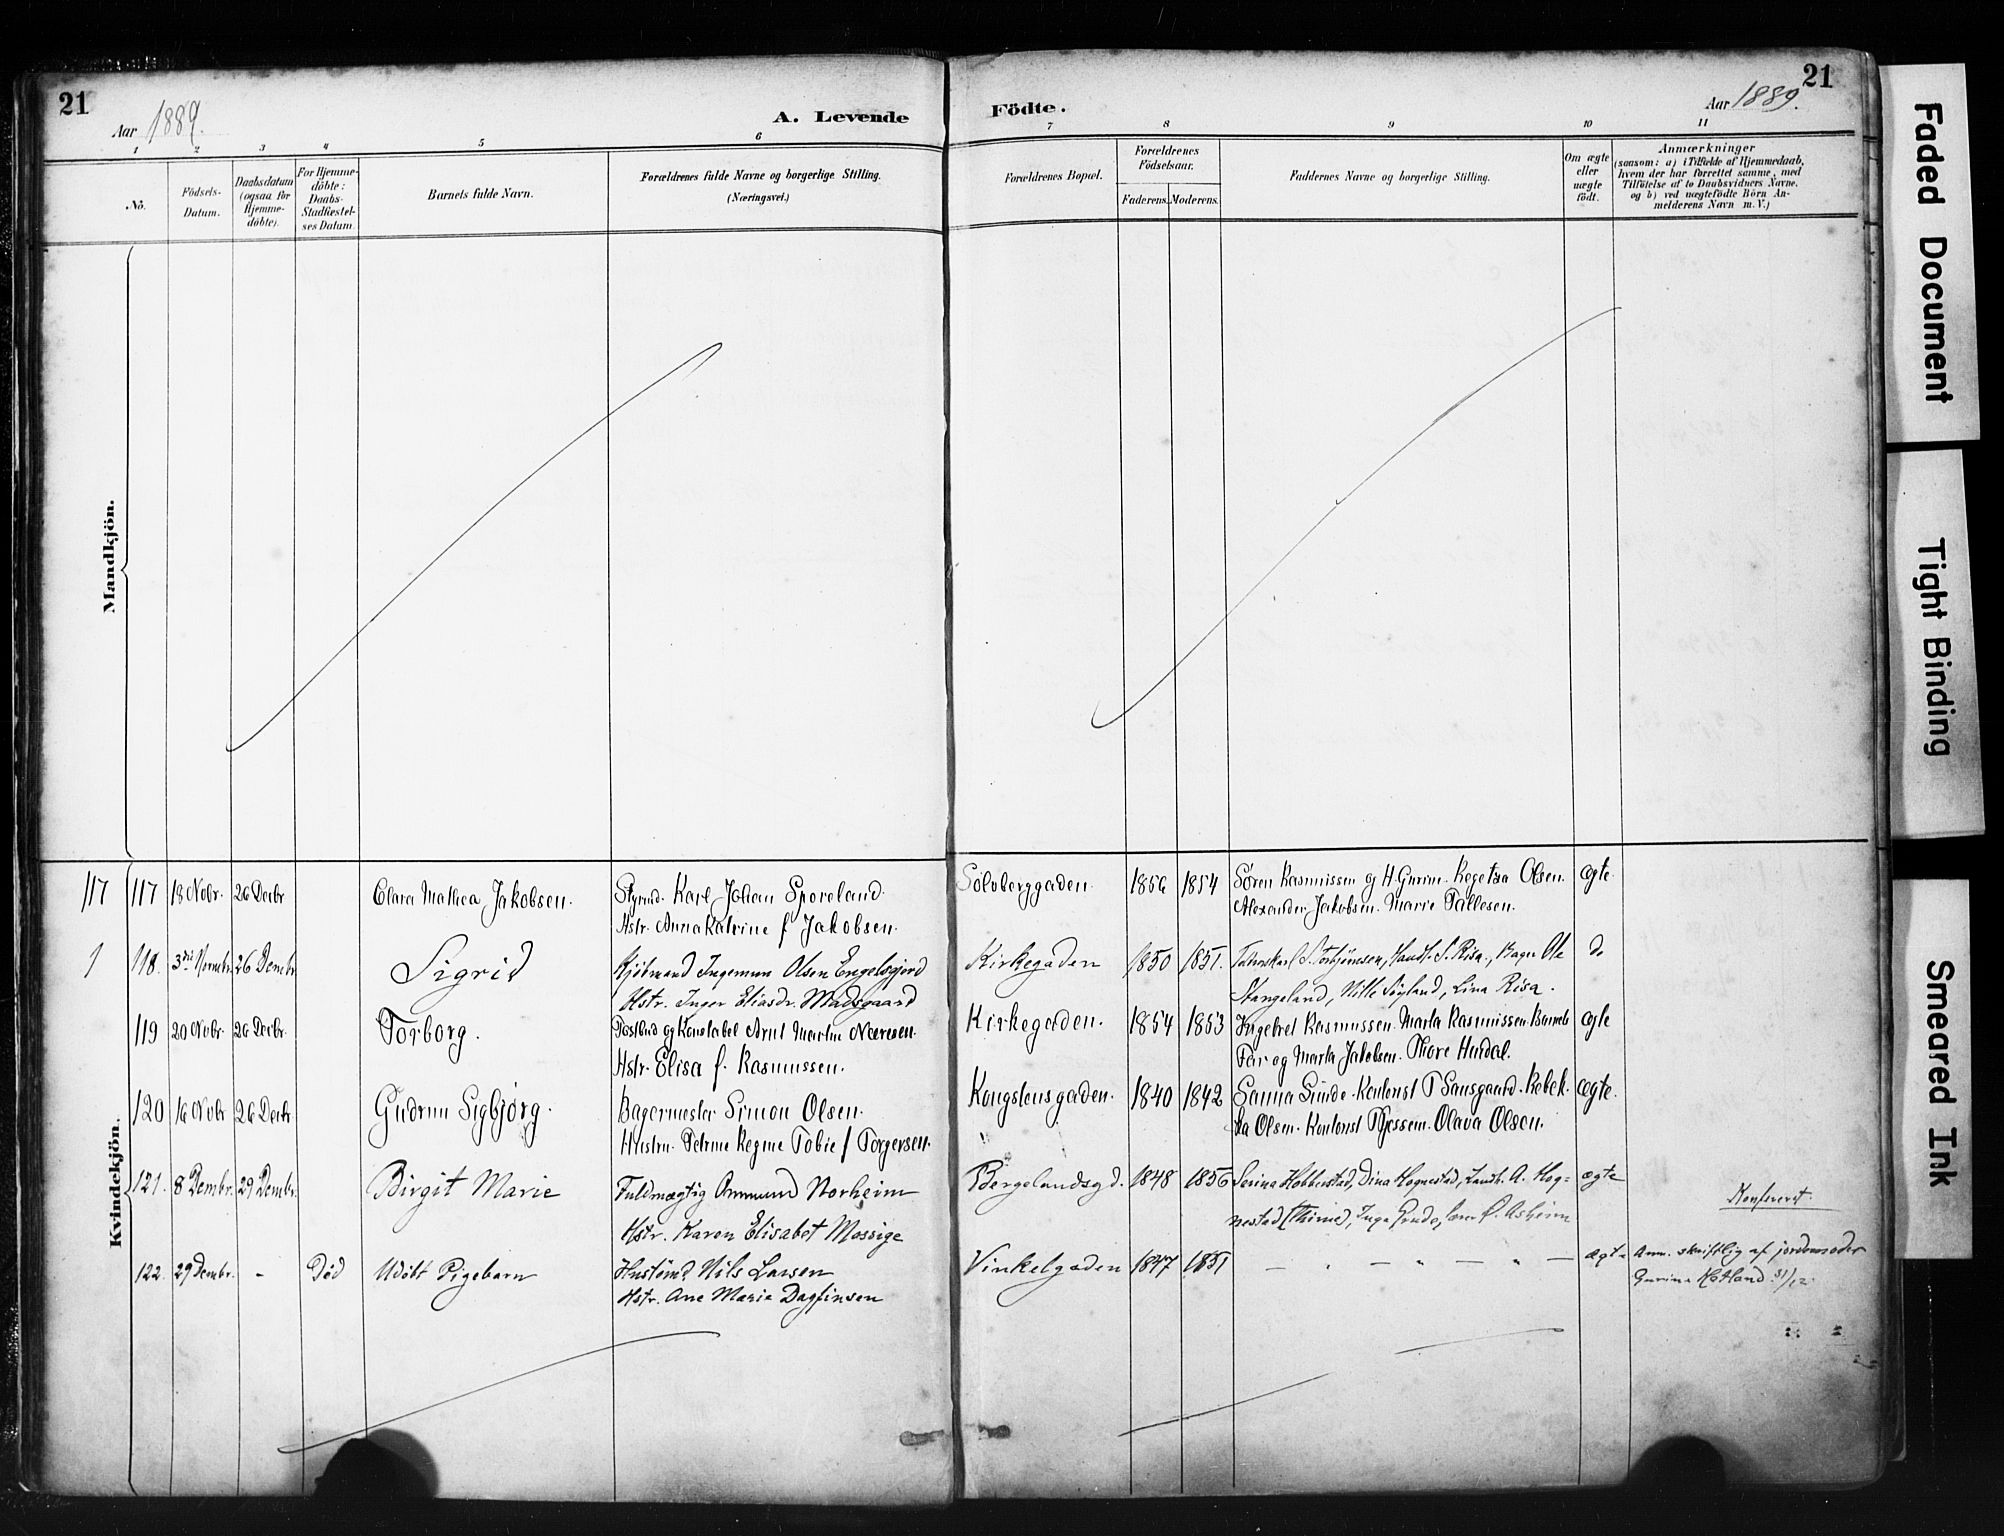 21
Aar 1889.
A. Levende
Födte.
Aar 1889.
21
1 2 3 4 5 6 7 8 9 10 11
No.
Födsels-Datum.
Daabsdatum (ogsaa for Hjemme-döbte).
For Hjemme-döbte: Daabs-Stadfæstel-ses Datum.
Barnets fulde Navn.
Forældrenes fulde Navne og borgerlige Stilling.
(Næringsvei.)
Forældrenes Bopæl.
Forældrenes Födselsaar.
Faderens. Moderens.
Faddernes Navne og borgerlige Stilling.
Om ægte eller uægte födt.
Anmærkninger
(saasom: a) i Tilfælde af Hjemmedaab,
hvem der har forrettet samme, med
Tilföielse af to Daabsvidners Navne.
og b) ved uægtefödte Börn An-
melderens Navn m. V.)
Mandkjön.
Kvindekjön.
117 117 18 Novbr. 26 Decbr Clara Mathea Jakobsen. Styrmd. Karl Johan Sporeland. Sölvberggaden. 1856 1854 Søren Rasmussen og H. Olsen. ægte.
Hstr. Anna Katrine f Jakobsen. Alexander Jakobsen. Marie Pallesen.
1 118. 26 Dembr Sigrid Ingemun Olsen Kirkegaden 1850 1851. S. Risa, Ole do
Hstr. Inger Eliasdr. Madsgaard Stangeland, Lina Risa.
119 20 Novbr. 26 Decbr. Torborg. og Konstabel Arnt Martin Næresen. Kirkegaden. 1854 1853 Ingebret Rasmussen. Marta Rasmussen. Barnets ægte
Hstr. Elisa f. Rasmussen. Far og Marta Jakobsen. Thore Hurdal.
120 16 Novbr 26 Decbr Gudrun Sigbjørg. Bagermester Simon Olsen. Kongstensgaden. 1840 1842 Sanna Sunde. T Sansgaard. Rebek- ægte.
Hustru. Petrine Regine Tobie f Torgersen. ka Olsen. Olava Olsen.
121. 8 Dembr. 29 Dembr. Birgit Marie Fuldmægtig Ammund Norheim Bergelandsgd. 1848 1856 Serina Hobberstad, Dina Hognestad, Landh. A. Hog= ægte
Hstr. Karen Elisabet Mossige nestad (Thime), Inga Grude, lærer Asheim
Konfereret.
122. 29 Dembr. - Död Udöbt Pigebarn Nils Larsen Vinkelgaden 1847 1851 — " — " — " — ægte Anm. skriftlig af jordemoder
Hstr. Ane Marie Dagfinsen Gurina Hatland 31/12.
Faded Document
Tight Binding
Smeared Ink